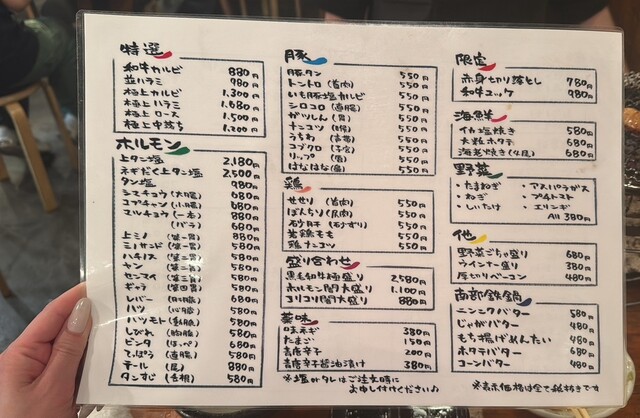 特選
和牛カルビ 880円
並ハラミ 980円
極上カルビ 1,300円
極上ハラミ 1,680円
極上ロース 1,500円
極上中落ち 1,200円
ホルモン
上タン塩 2,180円
ネギだく上タン塩 2,500円
タン塩 980円
シマチョウ(大腸) 680円
コプチャン(小腸) 680円
マルチョウ(一本) 880円
(バラ) 680円
上ミノ(第一胃) 880円
ミノサンド(第一胃) 580円
ハチノス(第二胃) 580円
ヤン(第二胃) 580円
センマイ(第三胃) 580円
ギャラ(第四胃) 580円
レバー(肝臓) 680円
ハツ(心臓) 580円
ハツモト(動脈) 580円
しびれ(胸腺) 580円
ビンタ(ほっぺ) 680円
てっぽう(直腸) 580円
テール(尾) 880円
タンすじ(舌根) 580円
豚
豚タン 550円
トントロ(首肉) 550円
いも豚塩カルビ 550円
シロコロ(直腸) 550円
ガツしん(胃) 550円
ナンコツ(喉) 550円
うちわ 550円
コブクロ(子宮) 550円
リップ 550円
はなはな 550円
鶏
せせり(首肉) 550円
ぼんちり(尻肉) 550円
砂肝(砂ずり) 550円
若鶏もも 550円
鶏ナンコツ 550円
盛り合わせ
黒毛和牛極盛り 2,580円
ホルモン闇大盛り 1,100円
コリコリ闇大盛り 880円
薬味
味ネギ 380円
たまご 150円
青唐辛子 200円
青唐辛子醤油漬け 380円
※塩かタレはご注文時に
お申し付けください♪
限定
赤身切り落とし 780円
和牛ユッケ 980円
海鮮
イカ塩焼き 580円
大粒ホタテ 680円
海老焼き(4尾) 680円
野菜
・たまねぎ ・アスパラガス
・ねぎ ・プチトマト
・しいたけ ・エリンギ
All 380円
他
野菜ごちゃ盛り 680円
ウインナー盛り 380円
厚切りベーコン 480円
南部鉄鍋
ニンニクバター 580円
じゃがバター 480円
もち揚げめんたい 480円
ホタテバター 680円
コーンバター 480円
※表示価格は全て税抜きです